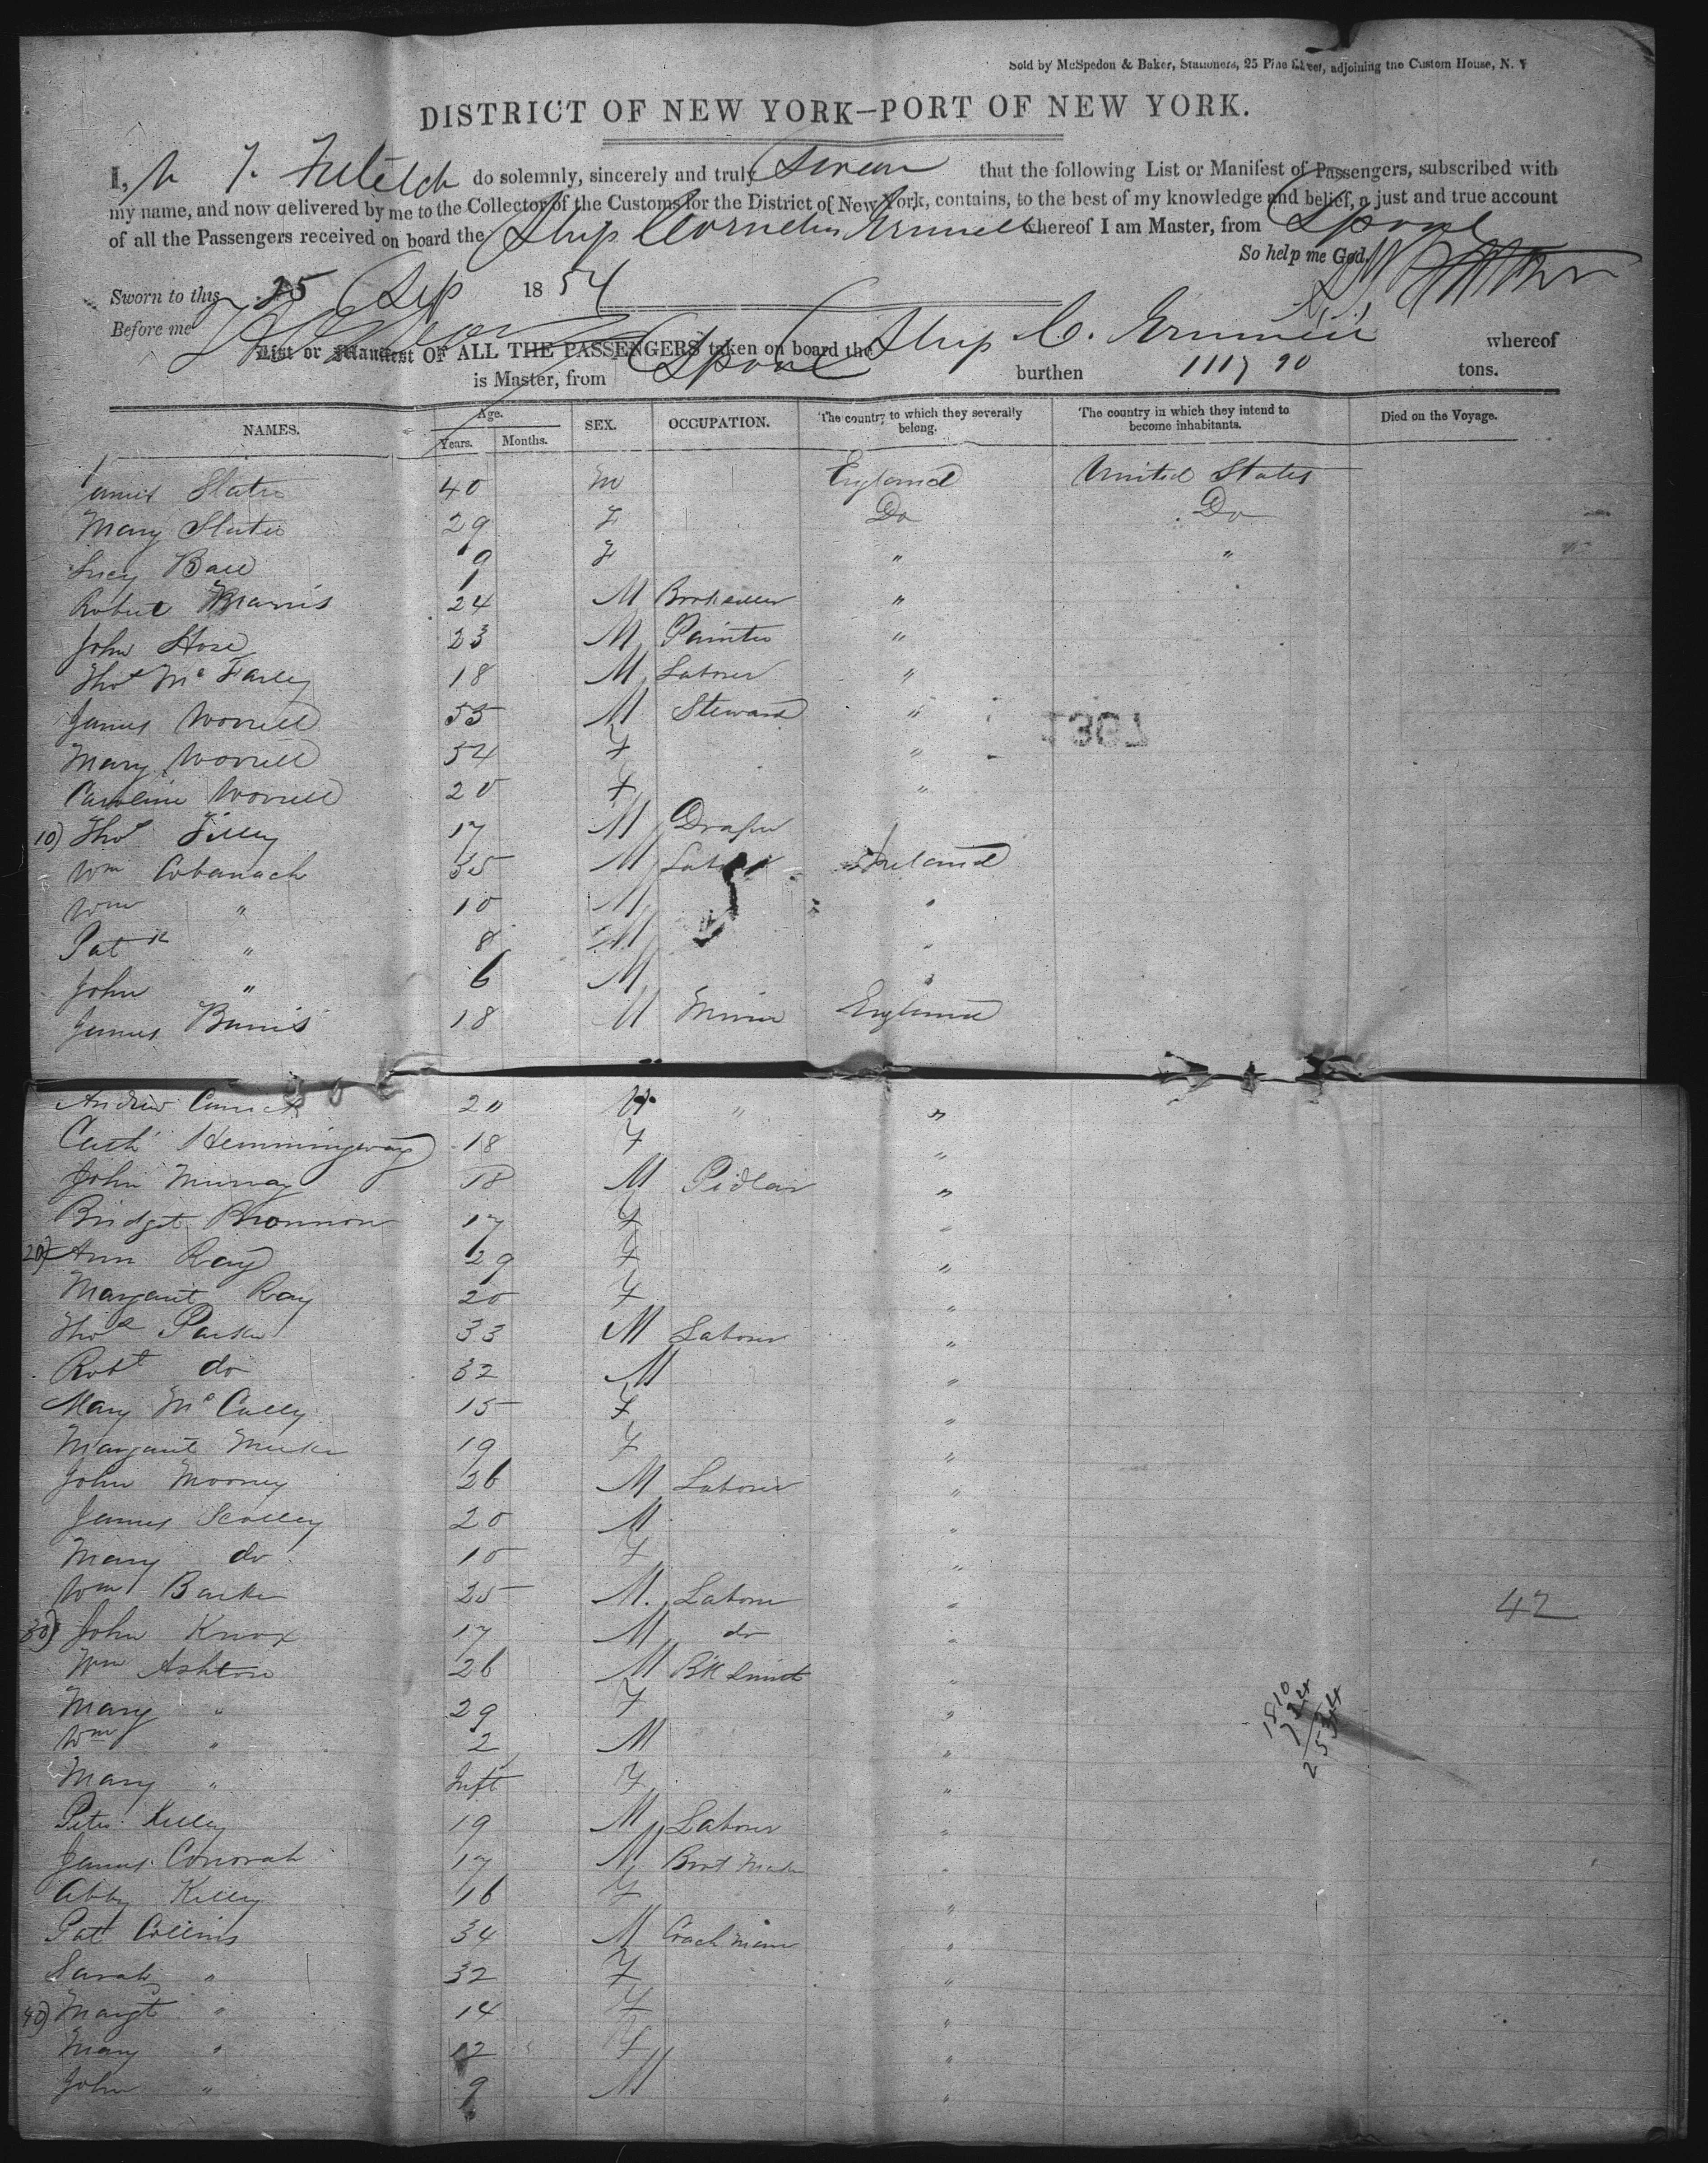 Sold by McSpedon & Baker, Stationers, 25 Pine Street, adjoining the Custom House, N. Y
DISTRICT OF NEW YORK–PORT OF NEW YORK.
I, do solemnly, sincerely and truly Swear that the following List or Manifest of Passengers, subscribed with
my name, and now delivered by me to the Collector of the Customs for the District of New York, contains, to the best of my knowledge and belief, a just and true account
of all the Passengers received on board the Ship Cornelius Grinnell whereof I am Master, from Lpool
So help me God.
Sworn to this 25 Sep 1854
Before me
List or Manifest OF ALL THE PASSENGERS taken on board the Ship C. Grinnell whereof
is Master, from Lpool burthen 1117 90 tons.
NAMES. Age. Years. Months. SEX. OCCUPATION. The country to which they severally belong. The country in which they intend to become inhabitants. Died on the Voyage.
James Slater 40 M England United States
Mary Slater 29 F Do Do
Lucy 9 F " "
Robert Marris 24 M Bookseller "
John 23 M Painter "
Thos Mc Farley 18 M Laborer "
James Worrell 55 M Steward " 1367
Mary Worrell 54 F "
Caroline Worrell 20 F "
10) Thos Tilley 17 M Draper
Wm Cobanach 35 M Labor Ireland
Wm " 10 M "
Patk " 8 M "
John " 6 M "
James Burns 18 M Miner England
Andrew 20 M " "
Cath Hemmingway 18 F "
John Murray 18 M Pidlar "
Bridget Bronnon 17 F "
20) Ann Ray 29 F "
Margaret Ray 20 F "
Thos Parker 33 M Laborer "
Robt do 32 M "
Mary Mc Cully 15 F "
Margaret 19 F "
John Mooney 26 M Laborer "
James Scolley 20 M "
Mary do 10 F "
Wm Barker 25 M. Laborer " 42
30) John Knox 17 M do "
Wm Ashton 26 M Blk Smith "
Mary " 29 F "
Wm " 2 M "
Mary " Inft F "
Peter Kelley 19 M Laborer "
James Conorah 17 M Boot Maker "
Abby Kelley 16 F "
Pat Collins 34 M Coach Man "
Sarah " 32 F "
40) Margt " 14 F "
Mary " 12 F "
John " 9 M "